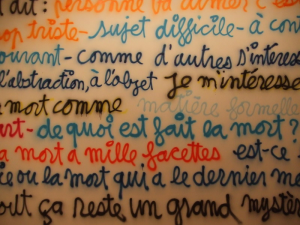 dit: personne va aimer c'est
rop triste- sujet difficile- à con
ourant- comme d'autres s'intéresse
l'abstraction, à l'objet Je m'intéresse
a mort comme matière formelle
art- de quoi est fait la mort?
a mort a mille facettes est-ce
ie ou la mort qui a le dernier mo
out ça reste un grand mystèr